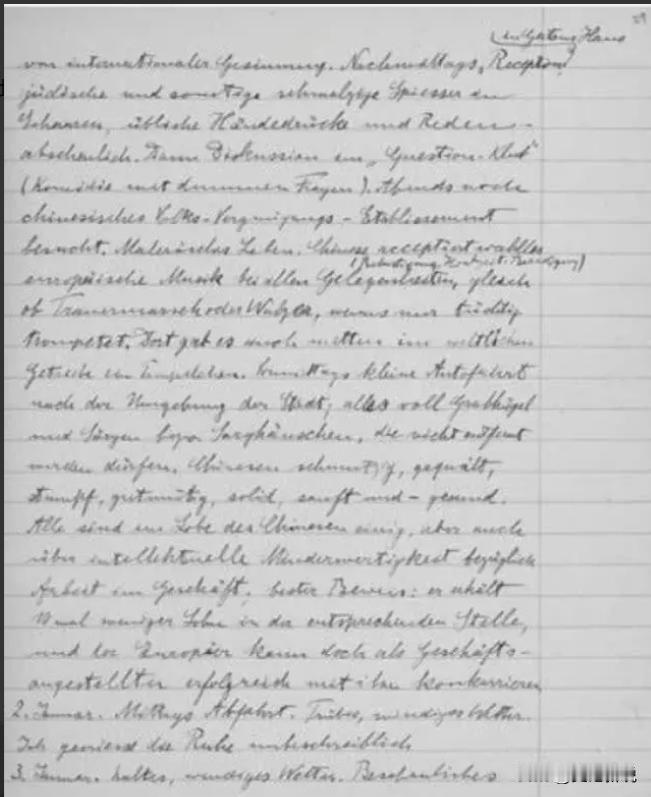 29
im Gartons Haus
von internationaler Gesinnung. Nachmittags „Reception“
jüdische und sonstige schmalzige Spiesser in
Scharen, übliche Händedrücke und Reden –
abscheulich. Dann Diskussion im „Question-Klub“
(Komödie mit dummen Fragen). Abends noch
chinesisches Volks-Vergnügungs-Etablissement
besucht. Malerisches Leben. Chinese receptiert wahllos
(Beerdigung, Hochzeit)
europäische Musik bei allen Gelegenheiten, gleich
ob Trauermarsch oder Walzer, wenns nur tüchtig
trompetet. Dort gab es auch mitten im weltlichen
Getriebe ein Tempelchen. Vormittags kleine Autofahrt
nach der Umgebung der Stadt, alles voll Grabhügel
und Särgen bezw Sarghäuschen, die nicht entfernt
werden dürfen. Chinesen schmutzig, gequält,
stumpf, gutmütig, solid, sanft und – gesund.
Alle sind im Lobe des Chinesen einig, aber auch
über intellektuelle Minderwertigkeit bezüglich
Arbeit im Geschäft; bester Beweis: er erhält
10 mal weniger Lohn in der entsprechenden Stelle,
und der Europäer kann doch als Geschäfts-
angestellter erfolgreich mit ihm konkurrieren
2. Januar. Mittags Abfahrt. Trübes, windiges Wetter.
Ich geniesse die Ruhe unbeschreiblich
3. Januar. kaltes, windiges Wetter. Beschauliches